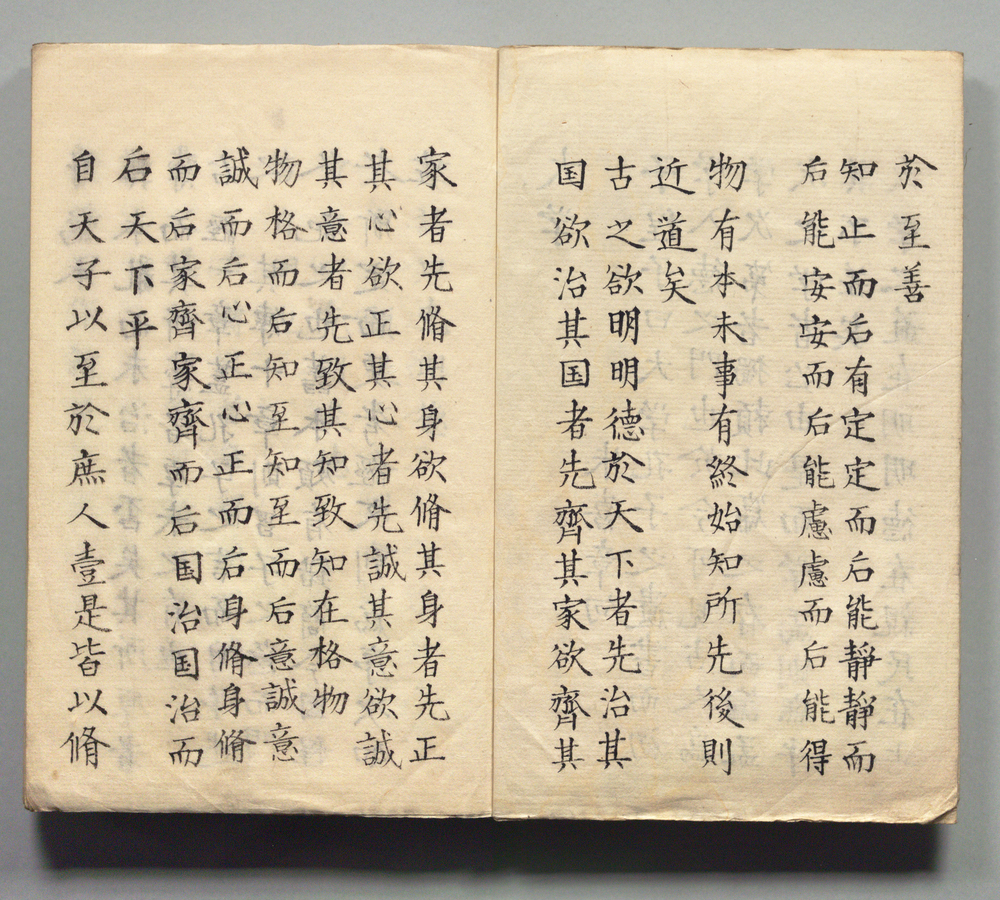 於至善
知止而后有定定而后能静静而
后能安安而后能慮慮而后能得
物有本末事有終始知所先後則
近道矣
古之欲明明德於天下者先治其
国欲治其国者先齊其家欲齊其
家者先脩其身欲脩其身者先正
其心欲正其心者先誠其意欲誠
其意者先致其知致知在格物
物格而后知至知至而后意誠意
誠而后心正心正而后身脩身脩
而后家齊家齊而后国治国治而
后天下平
自天子以至於庶人壹是皆以脩